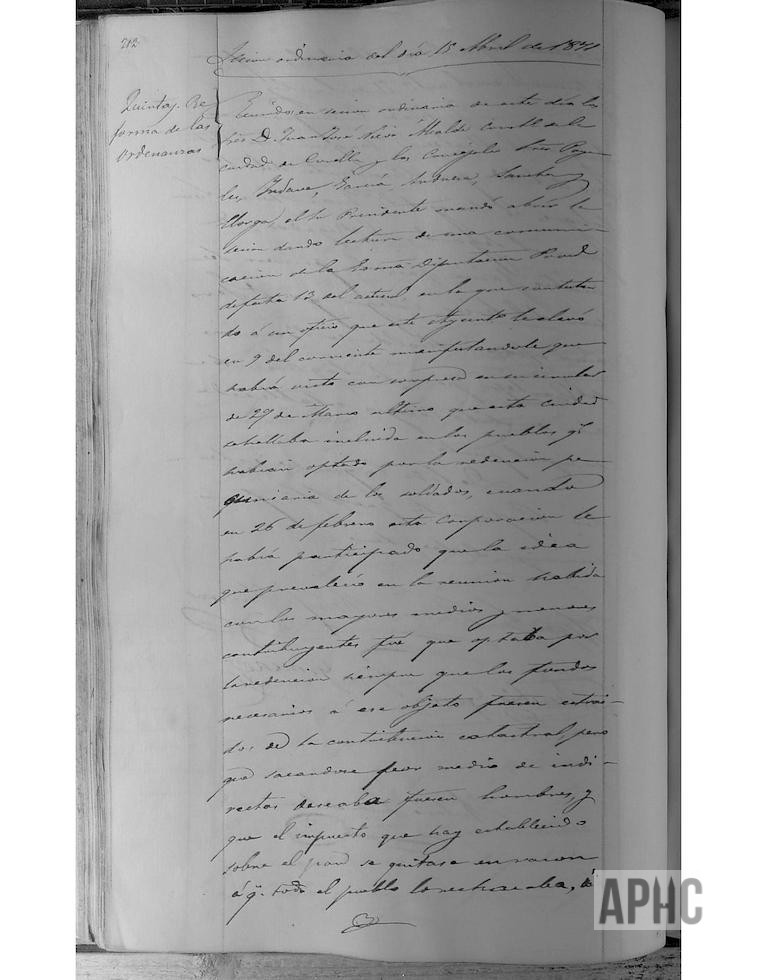 212
Sesion ordinaria del día 15 Abril de 1871
Quintas. Re
forma de las
Ordenanzas
Reunidos en sesion ordinaria de este día los
Sres D. Juan José Alcalde de la
ciudad de Corella y los Concejales Sres
García, Andueza, Sanchez y
el Sr Presidente mandó abrir la
sesion dando lectura de una comuni-
cacion de la Exma Diputacion
de fecha 13 del actual, en la que contestan
do á un oficio que este Ayunto le elevó
en 9 del corriente manifestandole que
habia visto con sorpresa en su circular
de 27 de Marzo ultimo que esta ciudad
se hallaba incluida en los pueblos q.e
habian optado por la redencion pe
cuniaria de los soldados, cuando
en 26 de febrero esta Corporacion le
habia participado que la idea
que prevaleció en la reunion habida
con los mayores medios y menores
contribuyentes fué que optaba por
la redencion siempre que los fondos
necesarios á ese objeto fuesen estrai-
dos de la contribucion catastral, pero
que sacandose por medio de indi-
rectas deseaba fuesen hombres, y
que el impuesto que hay establecido
sobre el pan se quitase en razon
á q.e todo el pueblo lo rechazaba, á
APHC